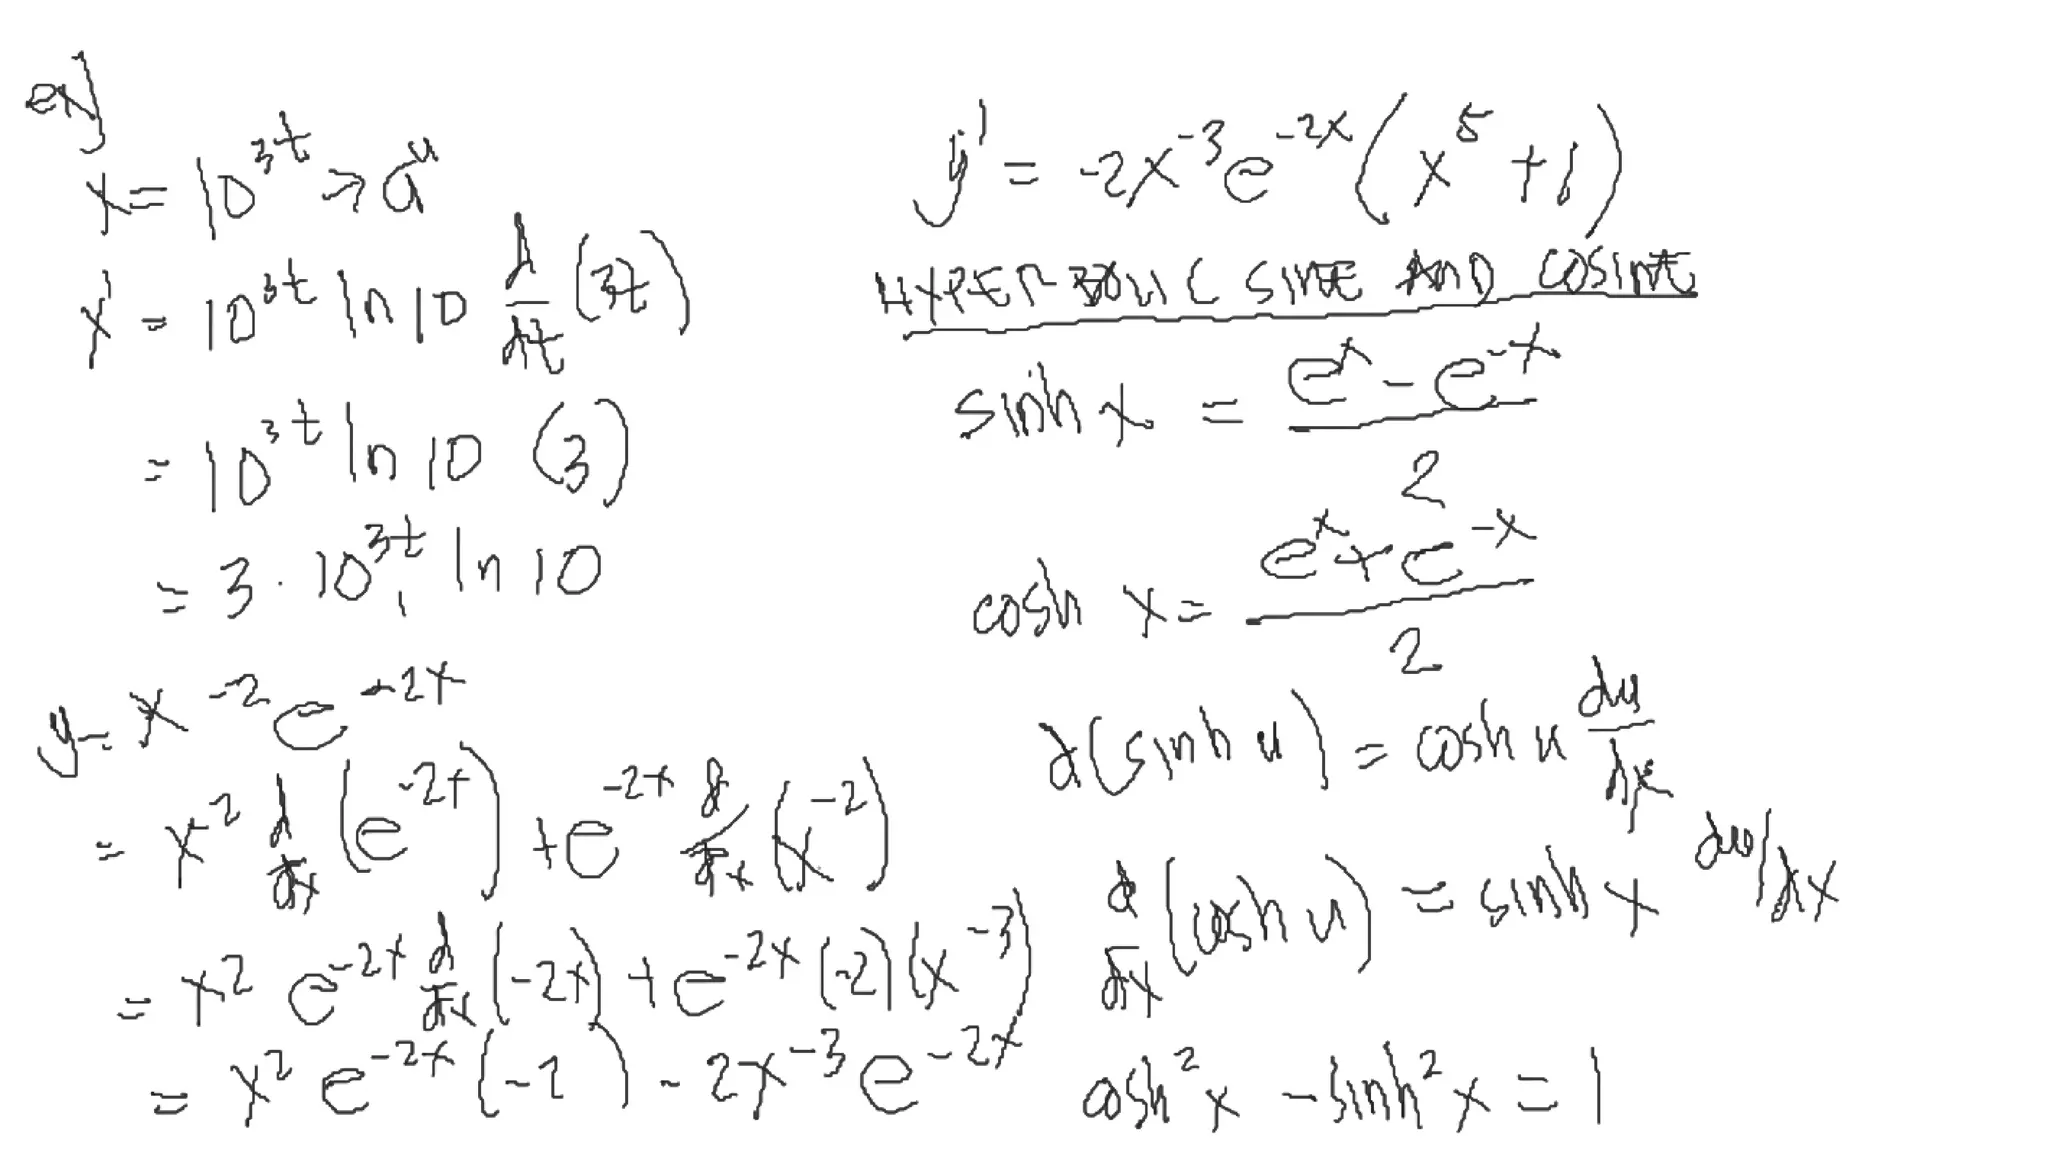 ex)
x = 10^{3t} → a^u
x' = 10^{3t} ln 10 d/dt (3t)
= 10^{3t} ln 10 (3)
= 3 · 10^{3t} ln 10
y = x^{-2} e^{-2x}
= x^2 d/dx (e^{-2x}) + e^{-2x} d/dx (x^{-2})
= x^2 e^{-2x} d/dx (-2x) + e^{-2x} (-2)(x^{-3})
= x^2 e^{-2x} (-2) - 2x^{-3} e^{-2x}
y' = -2x^{-3} e^{-2x} (x^5 + 1)
HYPERBOLIC SINE AND COSINE
sinh x = (e^x - e^{-x}) / 2
cosh x = (e^x + e^{-x}) / 2
d(sinh u) = cosh u du/dx
d/dx (cosh u) = sinh x du/dx
cosh^2 x - sinh^2 x = 1